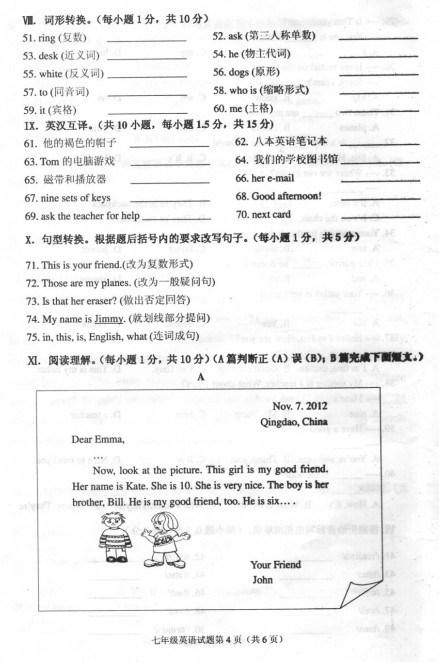 Ⅷ. 词形转换。(每小题 1 分，共 10 分)
51. ring (复数) ____________ 52. ask (第三人称单数) ____________
53. desk (近义词) ____________ 54. he (物主代词) ____________
55. white (反义词) ____________ 56. dogs (原形) ____________
57. to (同音词) ____________ 58. who is (缩略形式) ____________
59. it (宾格) ____________ 60. me (主格) ____________
IX. 英汉互译。(共 10 小题，每小题 1.5 分，共 15 分)
61. 他的褐色的帽子 ____________ 62. 八本英语笔记本 ____________
63. Tom 的电脑游戏 ____________ 64. 我们的学校图书馆 ____________
65. 磁带和播放器 ____________ 66. her e-mail ____________
67. nine sets of keys ____________ 68. Good afternoon! ____________
69. ask the teacher for help ____________ 70. next card ____________
X. 句型转换。根据题后括号内的要求改写句子。(每小题 1 分，共 5 分)
71. This is your friend.(改为复数形式)
72. Those are my planes. (改为一般疑问句)
73. Is that her eraser? (做出否定回答)
74. My name is Jimmy. (就划线部分提问)
75. in, this, is, English, what (连词成句)
XI. 阅读理解。(每小题 1 分，共 10 分) (A 篇判断正 (A) 误 (B)；B 篇完成下面短文。)
A
Nov. 7. 2012
Qingdao, China
Dear Emma,
…
Now, look at the picture. This girl is my good friend.
Her name is Kate. She is 10. She is very nice. The boy is her
brother, Bill. He is my good friend, too. He is six….
Your Friend
John
七年级英语试题第 4 页（共 6 页）